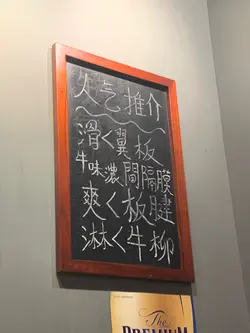 火气推介
滑く翼板
牛味濃間隔膜
爽く板腱
淋く牛柳
The
PREMIUM